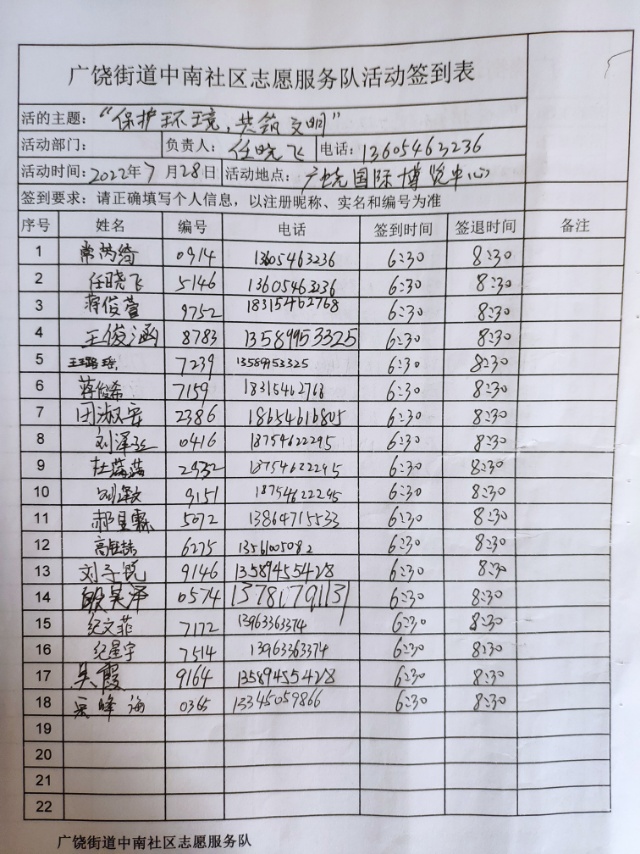 广饶街道中南社区志愿服务队活动签到表
活的主题：“保护环境，共筑文明”
活动部门： 负责人：任晓飞 电话：13605463236
活动时间：2022年7月28日 活动地点：广饶国际博览中心
签到要求：请正确填写个人信息，以注册昵称、实名和编号为准
序号 姓名 编号 电话 签到时间 签退时间 备注
1 0914 13605463236 6:30 8:30
2 任晓飞 5146 13605463236 6:30 8:30
3 蒋俊萱 9752 18315462768 6:30 8:30
4 王俊涵 8783 13589953325 6:30 8:30
5 7239 13589953325 6:30 8:30
6 蒋俊希 7159 18315462768 6:30 8:30
7 田淑宏 2386 18654616805 6:30 8:30
8 0416 18754622295 6:30 8:30
9 杜蕊蕊 2932 18754622295 6:30 8:30
10 9151 18754622295 6:30 8:30
11 郝星霖 5072 13864715533 6:30 8:30
12 6275 13561005082 6:30 8:30
13 刘子锐 9146 13589455428 6:30 8:30
14 殷昊泽 0574 13781791131 6:30 8:30
15 纪文菲 7172 13963363374 6:30 8:30
16 纪星宇 7514 13963363374 6:30 8:30
17 吴霞 9164 13589455428 6:30 8:30
18 吴峰海 0365 13345059866 6:30 8:30
19
20
21
22
广饶街道中南社区志愿服务队